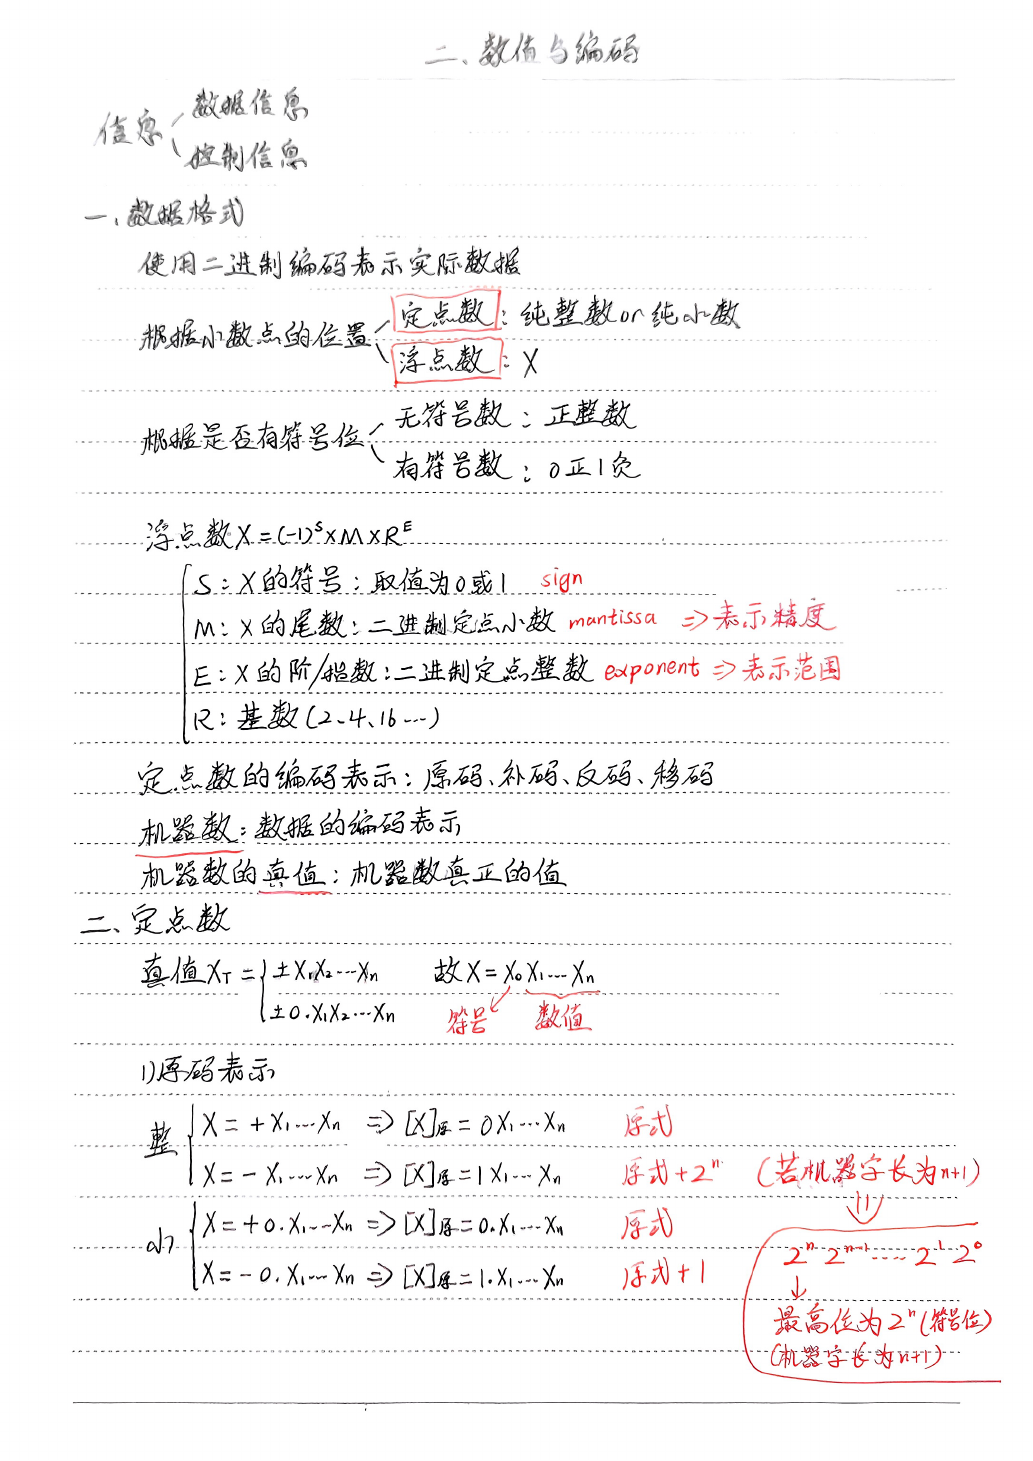 二、数值与编码
信息 数据信息
控制信息
一、数据格式
使用二进制编码表示实际数据
根据小数点的位置 定点数：纯整数or纯小数
浮点数：X
根据是否有符号位 无符号数：正整数
有符号数：0正1负
浮点数X=(-1)^S×M×R^E
S：X的符号：取值为0或1 sign
M：X的尾数：二进制定点小数 mantissa ⇒表示精度
E：X的阶/指数：二进制定点整数 exponent ⇒表示范围
R：基数(2、4、16…)
定点数的编码表示：原码、补码、反码、移码
机器数：数据的编码表示
机器数的真值：机器数真正的值
二、定点数
真值X_T = ±X₁X₂…Xn 故X=X₀X₁…Xn
±0.X₁X₂…Xn 符号 数值
1)原码表示
整 X=+X₁…Xn ⇒ [X]原=0X₁…Xn 原式
X=-X₁…Xn ⇒ [X]原=1X₁…Xn 原式+2ⁿ (若机器字长为n+1)
小 X=+0.X₁…Xn ⇒ [X]原=0.X₁…Xn 原式
X=-0.X₁…Xn ⇒ [X]原=1.X₁…Xn 原式+1
2ⁿ 2ⁿ⁻¹ …… 2¹ 2⁰
↓
最高位为2ⁿ(符号位)
(机器字长为n+1)